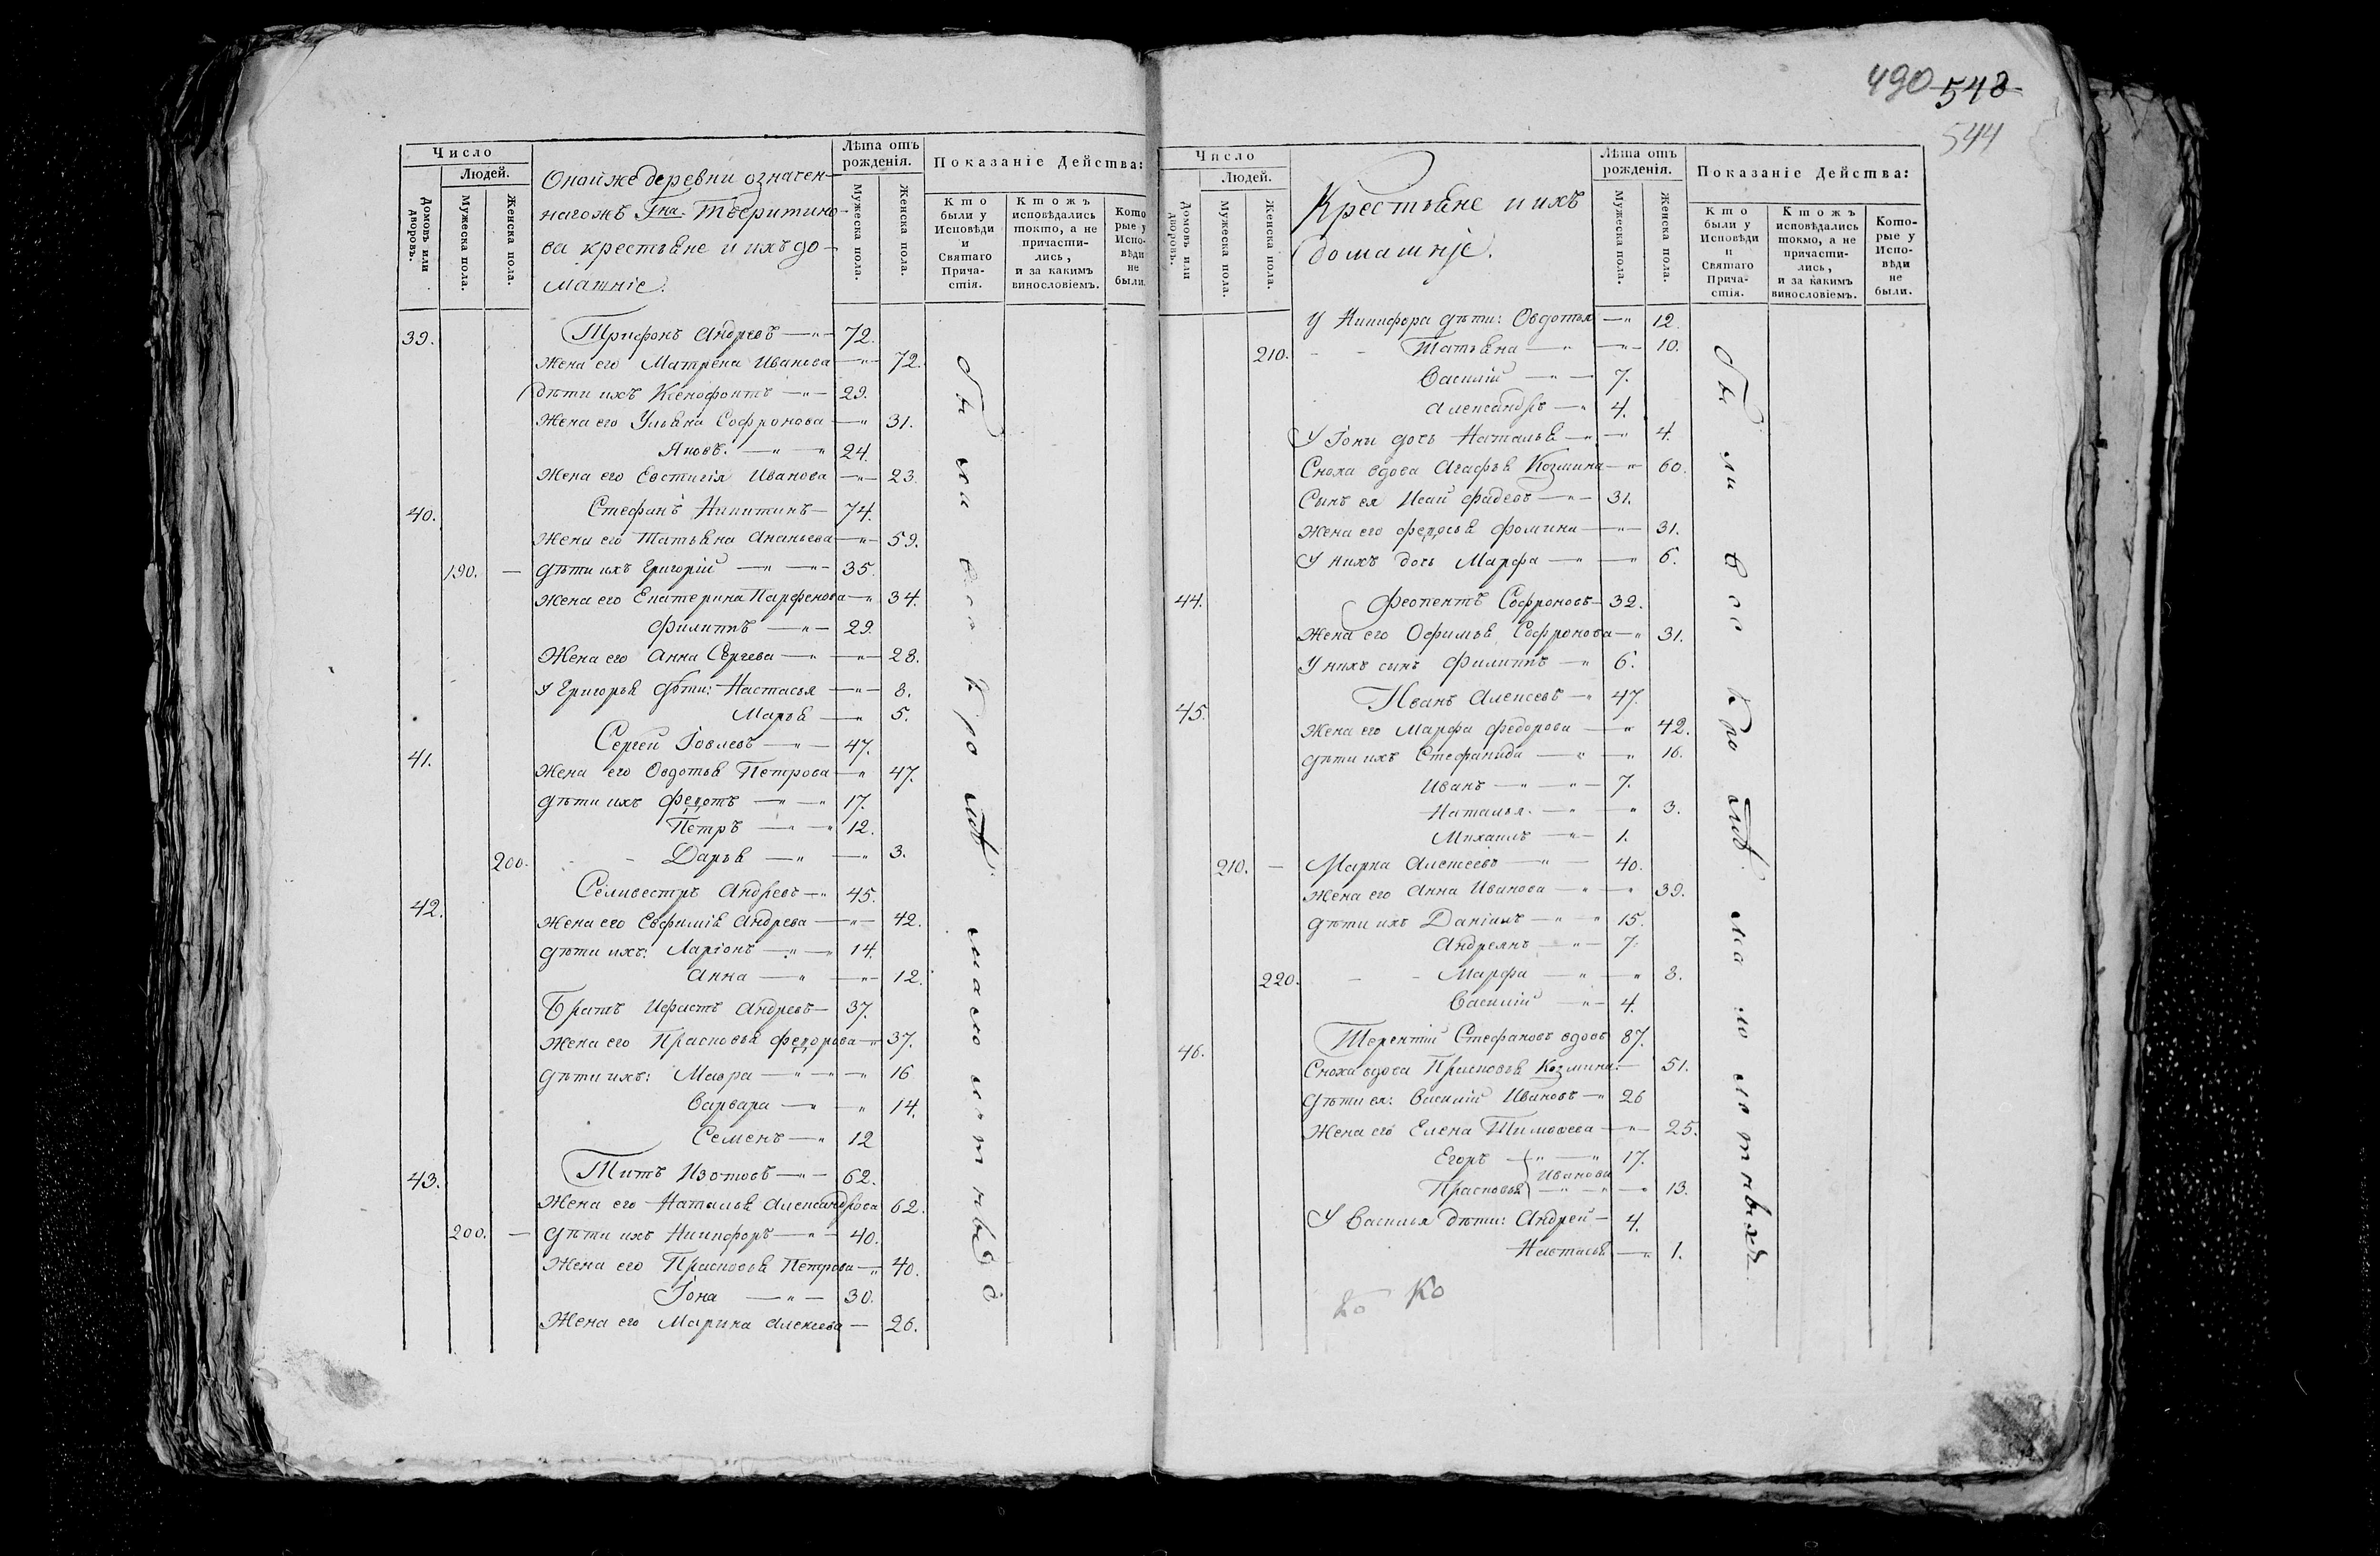 490 543
544
Число
Людей.
Домовъ или дворовъ.
Мужеска пола.
Женска пола.
Оной же деревни означен-
нагожъ Гна. Тверитино-
ва крестьяне и ихъ до-
машніе.
Лѣта отъ рожденія.
Мужеска пола.
Женска пола.
Показаніе Действа:
Кто были у Исповѣди и Святаго Прича-стія.
Ктожъ исповѣдались токто, а не причасти-лись, и за какимъ винословіемъ.
Кото рые у Испо-вѣди не были.
39. Трифонъ Андреевъ 72.
Жена его Матрена Иванова 72.
Дѣти ихъ Ксенофонтъ 29.
Жена его Ульяна Софронова 31.
Яковъ. 24.
Жена его Евстигія Иванова 23.
40. Стефанъ Никитинъ 74.
Жена его Татьяна Ананьева 59.
190. Дѣти ихъ Григорій 35.
Жена его Екатерина Парфенова 34.
Филиппъ 29.
Жена его Анна Сергеева 28.
У Григорья дѣти: Настасья 8.
Марья 5.
41. Сергей Іовлевъ 47.
Жена его Овдотья Петрова 47.
Дѣти ихъ Федотъ 17.
Петръ 12.
200. Дарья 3.
42. Селивестръ Андреевъ 45.
Жена его Евфимія Андреева 42.
Дѣти ихъ: Ларіонъ 14.
Анна 12.
Братъ Ифастъ Андреевъ 37.
Жена его Прасковья Федорова 37.
Дѣти ихъ: Мавра 16
Варвара 14.
Семенъ 12
43. Титъ Изотовъ 62.
Жена его Наталья Александрова 62.
200. Дѣти ихъ Никифоръ 40.
Жена его Прасковья Петрова 40.
Іона 30.
Жена его Марина Алексеева 26.
были все кромѣ малолетныхъ
Число
Людей.
Домовъ или дворовъ.
Мужеска пола.
Женска пола.
Крестьяне и ихъ
домашніе.
Лѣта отъ рожденія.
Мужеска пола.
Женска пола.
Показаніе Действа:
Кто были у Исповѣди и Святаго Прича-стія.
Ктожъ исповѣдались токмо, а не причасти-лись, и за какимъ винословіемъ.
Кото-рые у Испо-вѣди не были.
У Никифора дѣти: Овдотья 12.
210. Татьяна 10.
Василій 7.
Александръ 4.
У Іоны дочь Наталья 4.
Сноха вдова Агафья Козмина 60.
Сынъ ея Исай Фадеевъ 31.
Жена его Федосья Фомина 31.
У нихъ дочь Марфа 6.
44. Феопентъ Софроновъ 32.
Жена его Офимья Софронова 31.
У нихъ сынъ Филиппъ 6.
45. Иванъ Алексеевъ 47.
Жена его Марфа Федорова 42.
Дѣти ихъ Стефанида 16.
Иванъ 7.
Наталья. 3.
Михаилъ 1.
210. Марка Алексеевъ 40.
Жена его Анна Иванова 39.
Дѣти ихъ Даніилъ 15.
Андреянъ 7.
220. Марфа 8.
Василій 4.
46. Терентій Стефановъ вдовъ 87.
Сноха вдова Прасковья Козмина 51.
Дѣти ея: Василій Ивановъ 26
Жена его Елена Тимофеева 25.
Егоръ 17.
Ивановы
Прасковья 13.
У Василья дѣти: Андрей 4.
Настасья 1.
были все кромѣ малолетныхъ
Ко